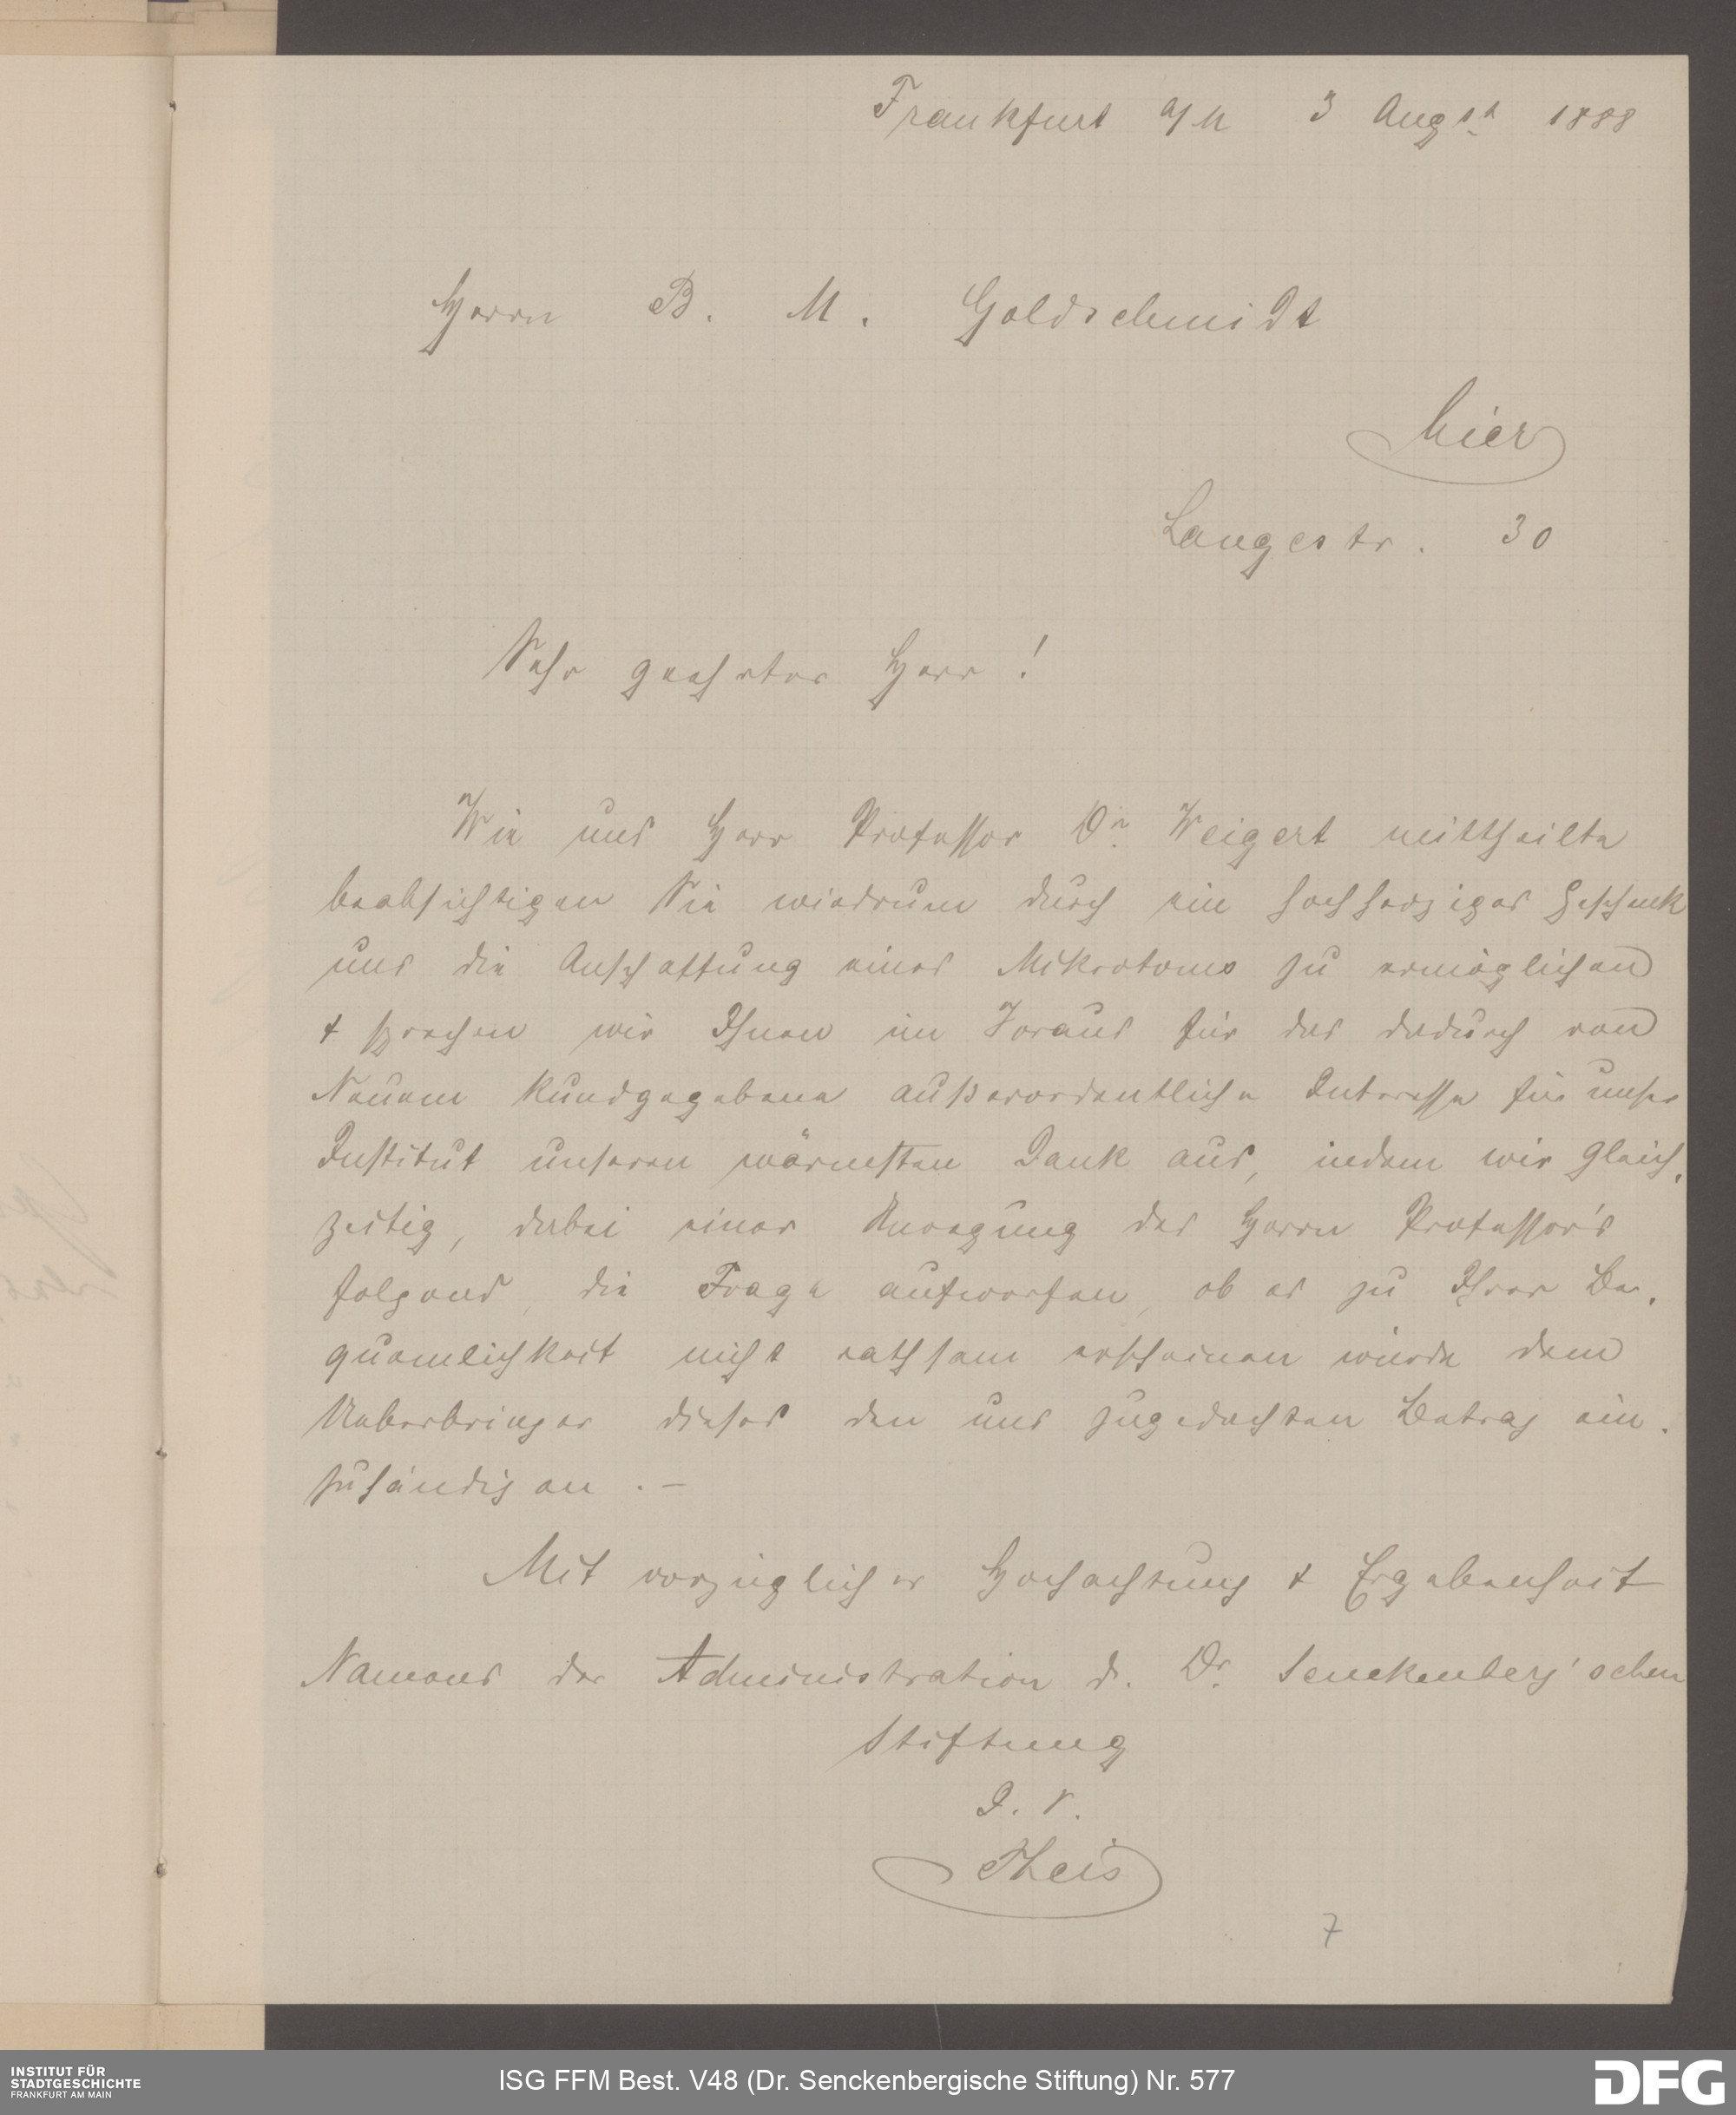 Frankfurt a/M 3 Augst 1888
Herrn B. M. Goldschmidt
hier
Langestr. 30
Sehr geehrter Herr!
Wie uns Herr Professor Dr. Weigert mittheilte
beabsichtigen Sie wiedrum durch ein hochherziges Geschenk
uns die Anschaffung eines Mikrotoms zu ermöglichen
& sprechen wir Ihnen im Voraus für das dadurch von
Neuem kundgegebene außerordentliche Interesse für unser
Institut unseren wärmsten Dank aus, indem wir gleich,
zeitig, dabei einer Anregung des Herrn Professor's
folgend, die Frage aufwerfen, ob es zu Ihrer Be,
quemlichkeit nicht rathsam erscheinen würde dem
Ueberbringer dieses den uns zugedachten Betrag ein.
zuhändigen. –
Mit vorzüglicher Hochachtung & Ergebenheit
Namens der Administration d. Dr. Senckenberg'schen
Stiftung
I. V.
Theis
7
INSTITUT FÜR
STADTGESCHICHTE
FRANKFURT AM MAIN
ISG FFM Best. V48 (Dr. Senckenbergische Stiftung) Nr. 577
DFG